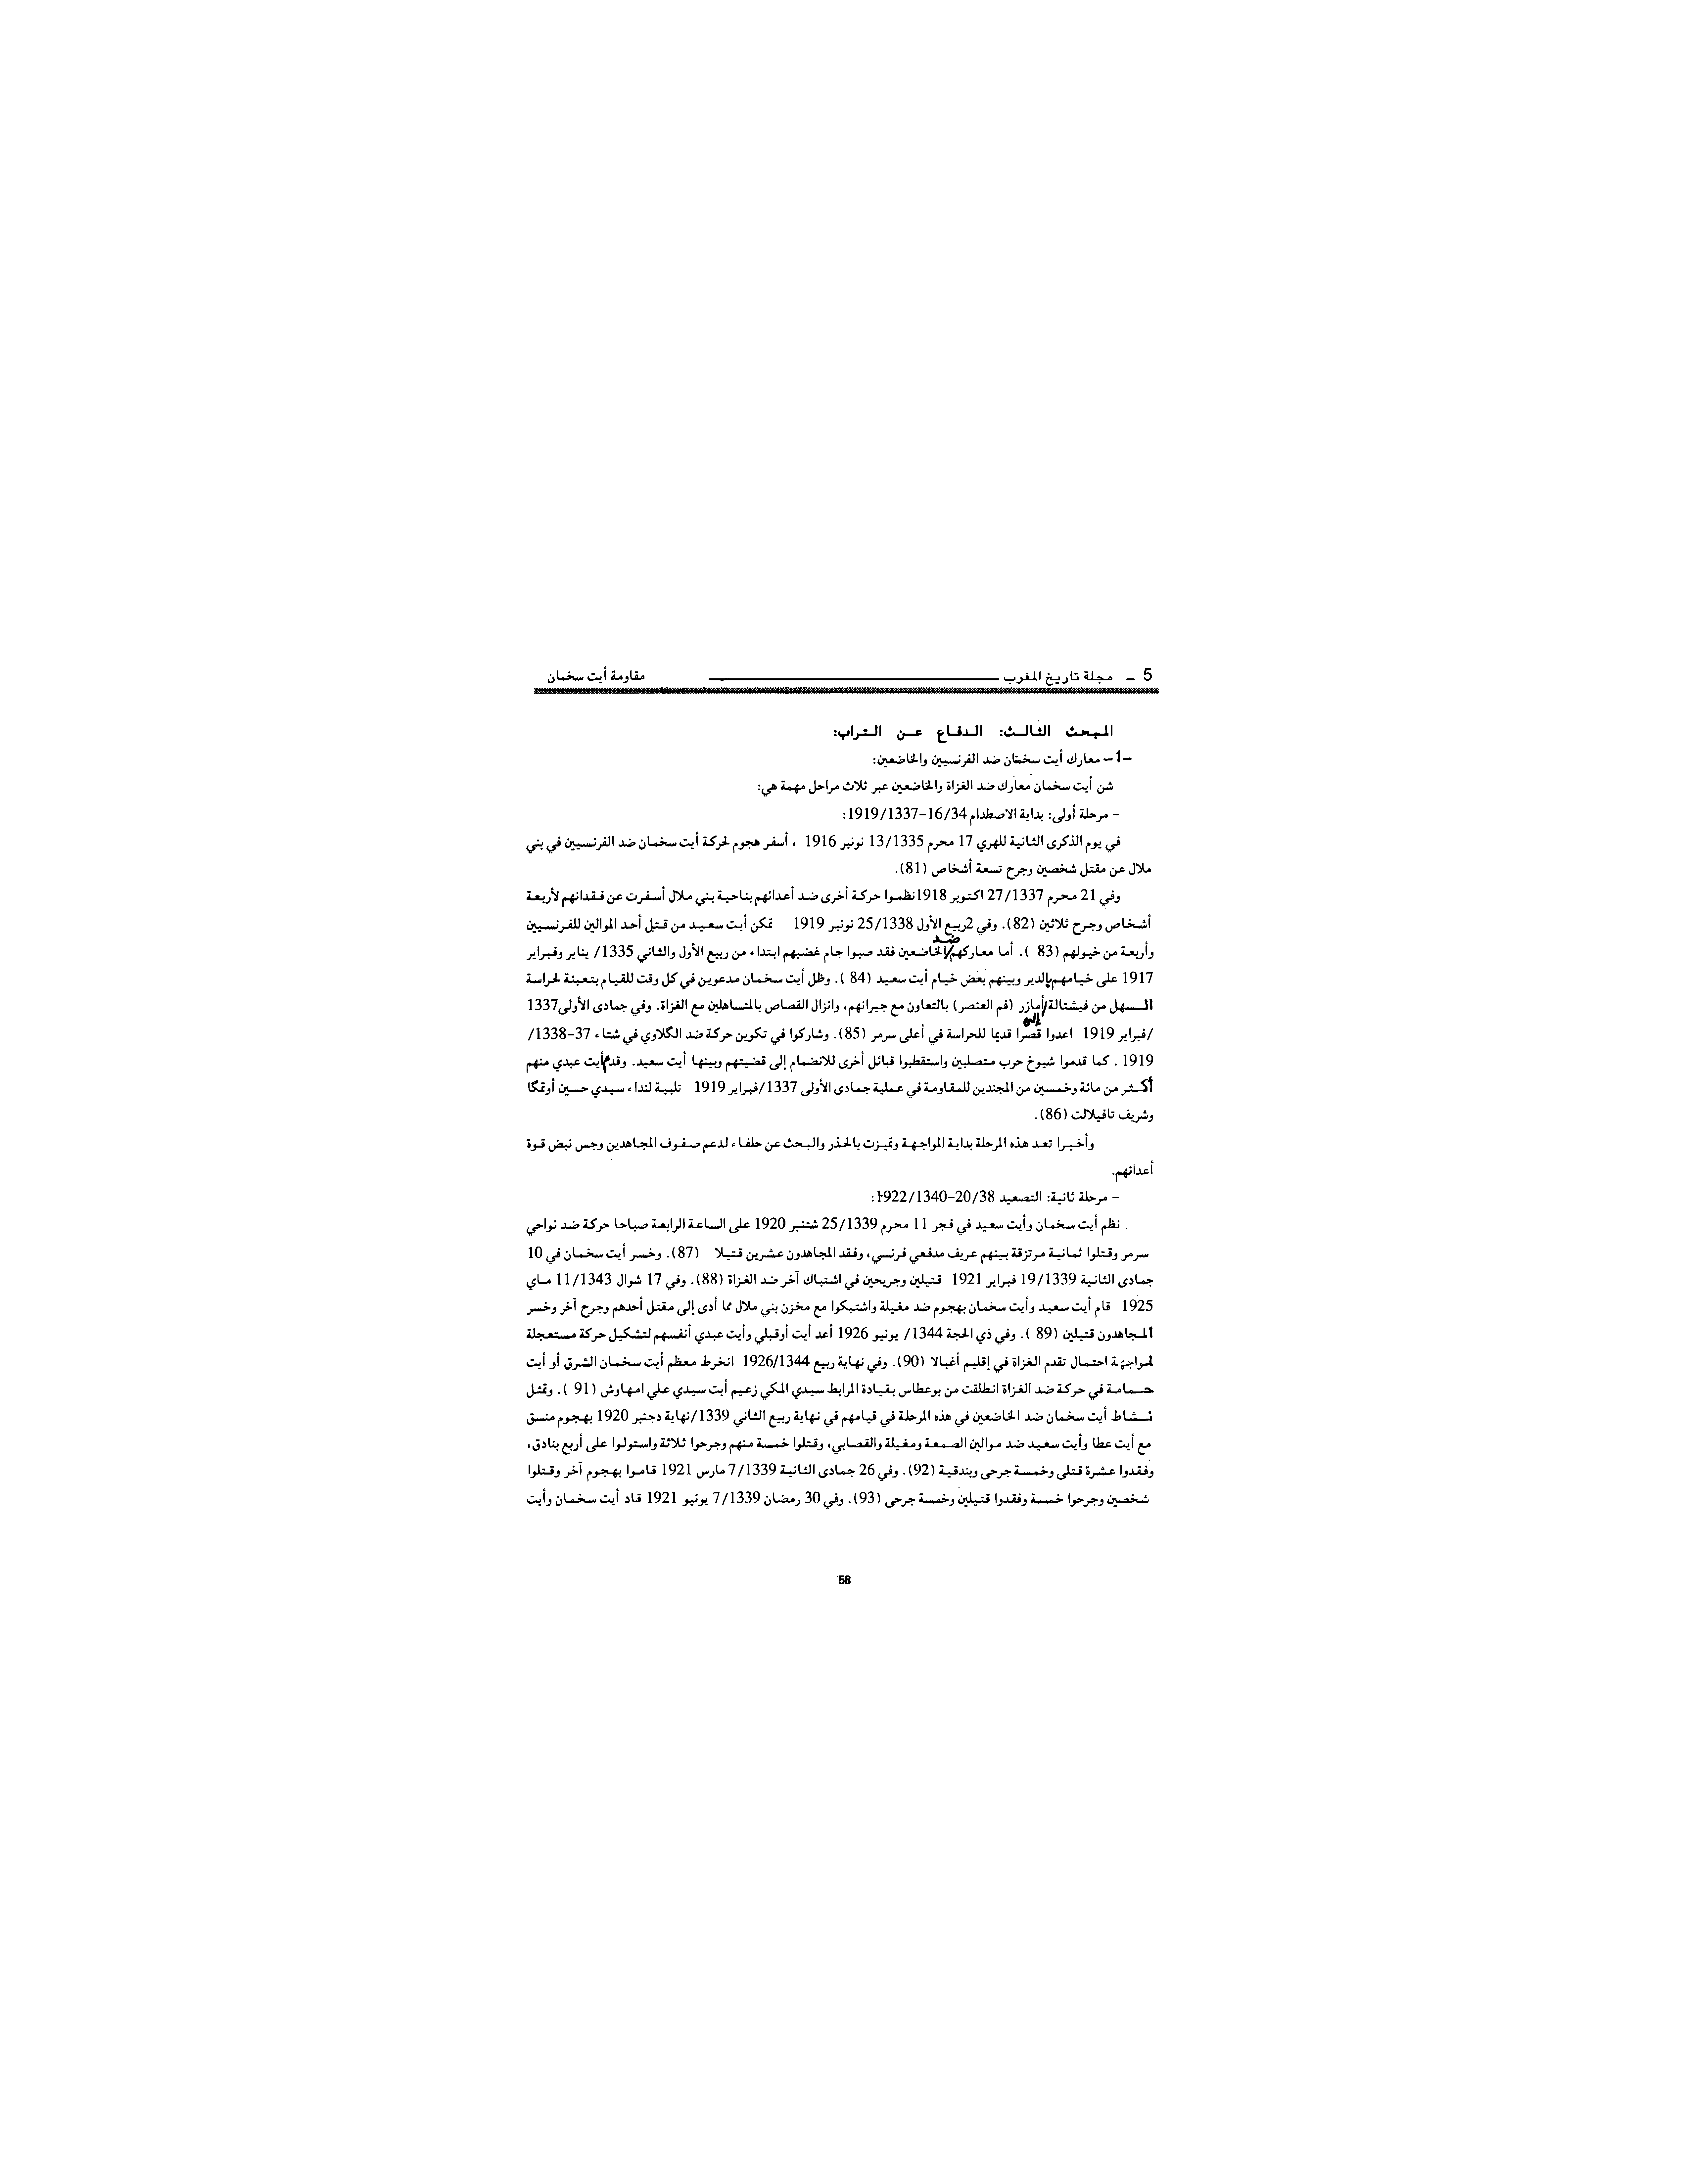 5 – مجلة تاريخ المغرب مقاومة أيت سخمان
المبحث الثالث: الدفاع عن التراب:
–1– معارك أيت سخمان ضد الفرنسيين والخاضعين:
شن أيت سخمان معارك ضد الغزاة والخاضعين عبر ثلاث مراحل مهمة هي:
- مرحلة أولى: بداية الاصطدام 16/34-1919/1337:
في يوم الذكرى الثانية للهري 17 محرم 13/1335 نونبر 1916 ، أسفر هجوم لحركة أيت سخمان ضد الفرنسيين في بني
ملال عن مقتل شخصين وجرح تسعة أشخاص (81).
وفي 21 محرم 27/1337 اكتوبر 1918نظموا حركة أخرى ضد أعدائهم بناحية بني ملال أسفرت عن فقدانهم لأربعة
أشخاص وجرح ثلاثين (82). وفي 2ربيع الأول 25/1338 نونبر 1919 تمكن أيت سعيد من قتل أحد الموالين للفرنسيين
وأربعة من خيولهم (83 ). أما معاركهم/ضد الخاضعين فقد صبوا جام غضبهم ابتداء من ربيع الأول والثاني 1335/ يناير وفبراير
1917 على خيامهم بالدير وبينهم بعض خيام أيت سعيد (84 ). وظل أيت سخمان مدعوين في كل وقت للقيام بتعبئة لحراسة
السهل من فيشتالة/إلى أمازر (فم العنصر) بالتعاون مع جيرانهم، وانزال القصاص بالمتساهلين مع الغزاة. وفي جمادى الأولى1337
/فبراير 1919 اعدوا قصرا قديما للحراسة في أعلى سرمر (85). وشاركوا في تكوين حركة ضد الگلاوي في شتاء 37-1338/
1919 . كما قدموا شيوخ حرب متصلبين واستقطبوا قبائل أخرى للانضمام إلى قضيتهم وبينها أيت سعيد. وقدم أيت عبدي منهم
أكثر من مائة وخمسين من المجندين للمقاومة في عملية جمادى الأولى 1337/فبراير 1919 تلبية لنداء سيدي حسين أوتمگا
وشريف تافيلالت (86).
وأخيرا تعد هذه المرحلة بداية المواجهة وتميزت بالحذر والبحث عن حلفاء لدعم صفوف المجاهدين وجس نبض قوة
أعدائهم.
- مرحلة ثانية: التصعيد 20/38-1922/1340:
نظم أيت سخمان وأيت سعيد في فجر 11 محرم 25/1339 شتنبر 1920 على الساعة الرابعة صباحا حركة ضد نواحي
سرمر وقتلوا ثمانية مرتزقة بينهم عريف مدفعي فرنسي، وفقد المجاهدون عشرين قتيلا (87). وخسر أيت سخمان في 10
جمادى الثانية 19/1339 فبراير 1921 قتيلين وجريحين في اشتباك آخر ضد الغزاة (88). وفي 17 شوال 11/1343 ماي
1925 قام أيت سعيد وأيت سخمان بهجوم ضد مغيلة واشتبكوا مع مخزن بني ملال مما أدى إلى مقتل أحدهم وجرح آخر وخسر
المجاهدون قتيلين (89 ). وفي ذي الحجة 1344/ يونيو 1926 أعد أيت أوقبلي وأيت عبدي أنفسهم لتشكيل حركة مستعجلة
لمواجهة احتمال تقدم الغزاة في إقليم أغبالا (90). وفي نهاية ربيع 1926/1344 انخرط معظم أيت سخمان الشرق أو أيت
حمامة في حركة ضد الغزاة انطلقت من بوعطاس بقيادة المرابط سيدي المكي زعيم أيت سيدي علي امهاوش (91 ). وتمثل
نشاط أيت سخمان ضد الخاضعين في هذه المرحلة في قيامهم في نهاية ربيع الثاني 1339/نهاية دجنبر 1920 بهجوم منسق
مع أيت عطا وأيت سعيد ضد موالين الصمعة ومغيلة والقصابي، وقتلوا خمسة منهم وجرحوا ثلاثة واستولوا على أربع بنادق،
وفقدوا عشرة قتلى وخمسة جرحى وبندقية (92). وفي 26 جمادى الثانية 7/1339 مارس 1921 قاموا بهجوم آخر وقتلوا
شخصين وجرحوا خمسة وفقدوا قتيلين وخمسة جرحى (93). وفي 30 رمضان 7/1339 يونيو 1921 قاد أيت سخمان وأيت
58